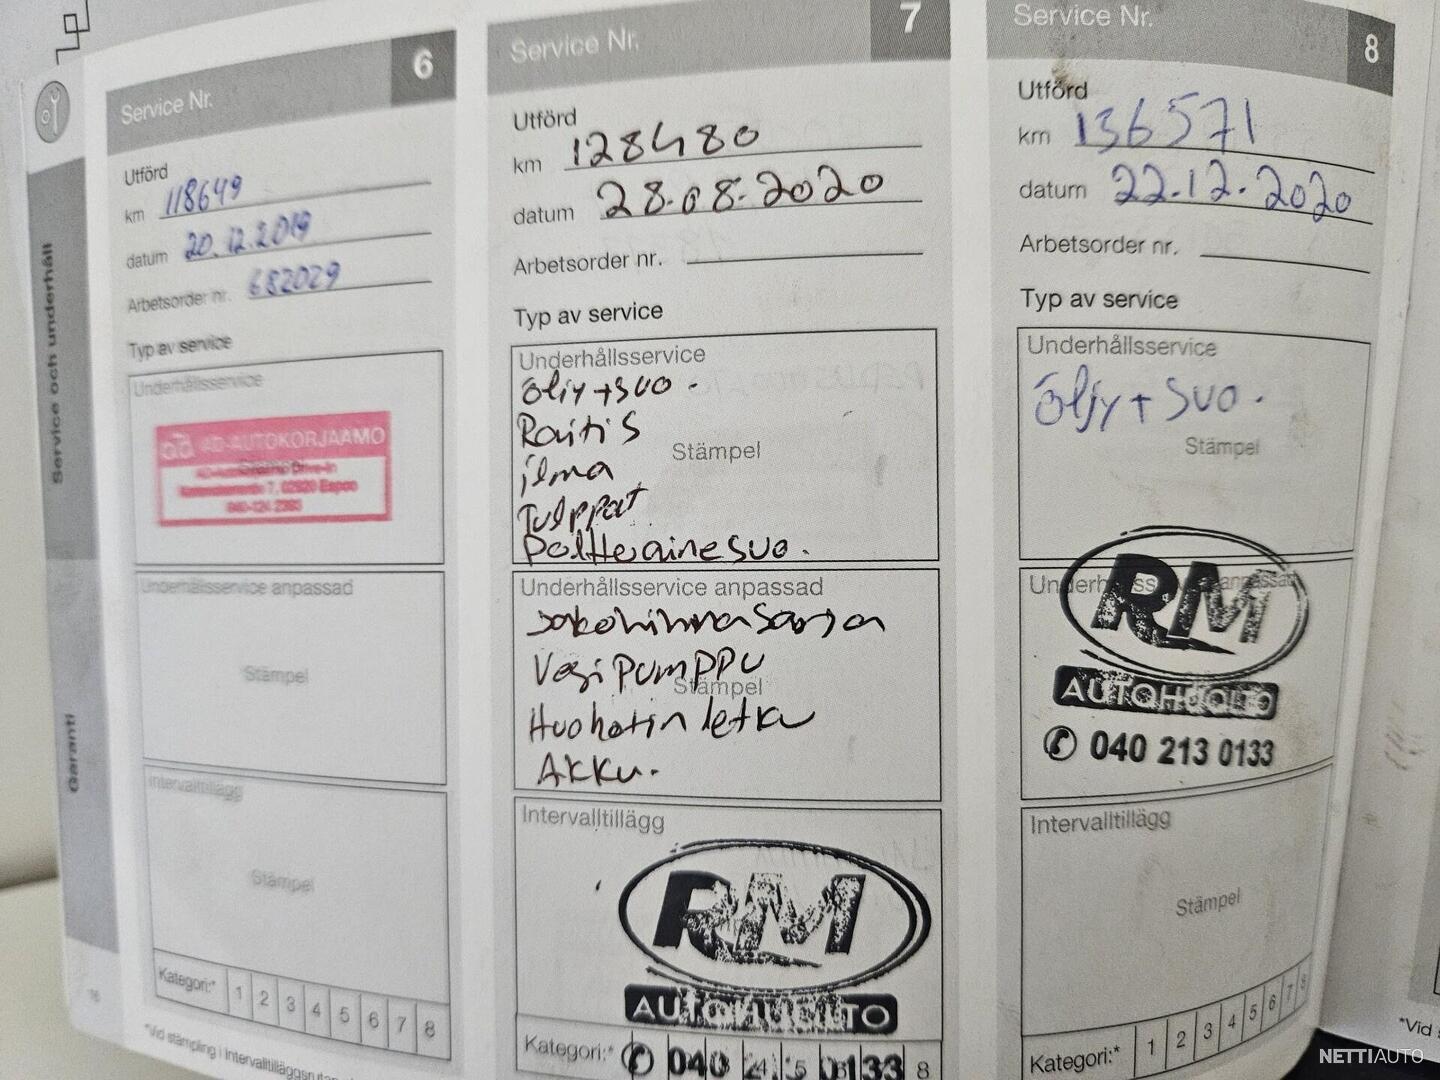 Service och underhåll
Garanti
16
Service Nr. 6
Utförd
km 118649
datum 20.12.2019
Arbetsorder nr. 682029
Typ av service
Underhållsservice
ad AD-AUTOKORJAAMO
02920 Espoo
Underhållsservice anpassad
Stämpel
Intervalltillägg
Stämpel
Kategori:* 1 2 3 4 5 6 7 8
*Vid stämpling i Intervalltilläggsrutan
Service Nr. 7
Utförd
km 128480
datum 28.08.2020
Arbetsorder nr.
Typ av service
Underhållsservice
öljy + suo.
Raitis
ilma
Stämpel
Tulppat
Polttoainesuo.
Underhållsservice anpassad
Jakohihnasarja
Vesipumppu
Stämpel
Huohotin letku
Akku.
Intervalltillägg
RM
AUTOHUOLTO
Kategori:* 040 0133 8
Service Nr. 8
Utförd
km 136571
datum 22.12.2020
Arbetsorder nr.
Typ av service
Underhållsservice
öljy + suo.
Stämpel
Underhållsservice anpassad
RM
AUTOHUOLTO
040 213 0133
Intervalltillägg
Stämpel
Kategori:* 1 2 3 4 5 6 7 8
*Vid
NETTIAUTO